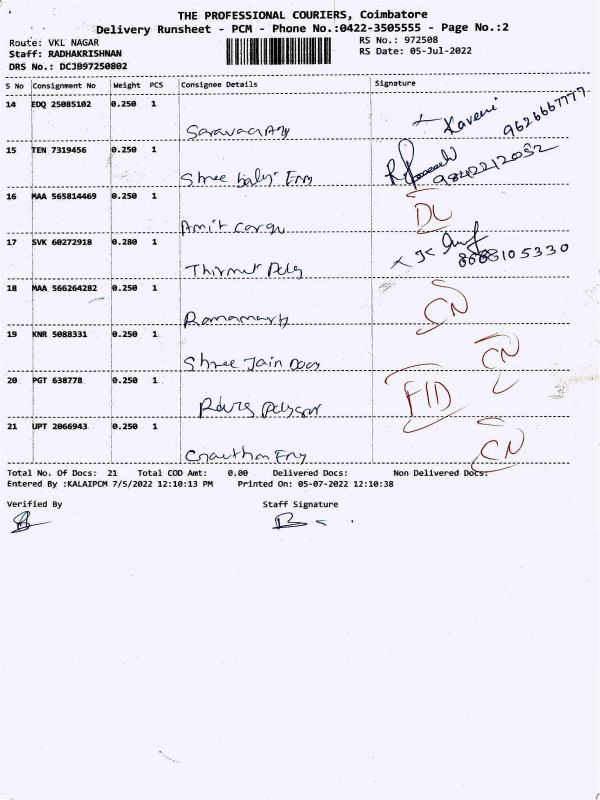 THE PROFESSIONAL COURIERS, Coimbatore
Delivery Runsheet - PCM - Phone No.:0422-3505555 - Page No.:2
Route: VKL NAGAR RS No.: 972508
Staff: RADHAKRISHNAN RS Date: 05-Jul-2022
DRS No.: DCJB97250802
S No Consignment No Weight PCS Consignee Details Signature
14 EDQ 25085102 0.250 1
Kaveri 9626667777
15 TEN 7319456 0.250 1
9842212032
Shree balaji Eng
16 MAA 565814469 0.250 1
DL
Amit Cargo
17 SVK 60272918 0.280 1
8668105330
18 MAA 566264282 0.250 1
CN
Ramamurthy
19 KNR 5088331 0.250 1
CN
Shree Jain
20 PGT 638778 0.250 1
FID
21 UPT 2066943 0.250 1
CN
Gowtham Eng
Total No. Of Docs: 21 Total COD Amt: 0.00 Delivered Docs: Non Delivered Docs:
Entered By :KALAIPCM 7/5/2022 12:10:13 PM Printed On: 05-07-2022 12:10:38
Verified By Staff Signature